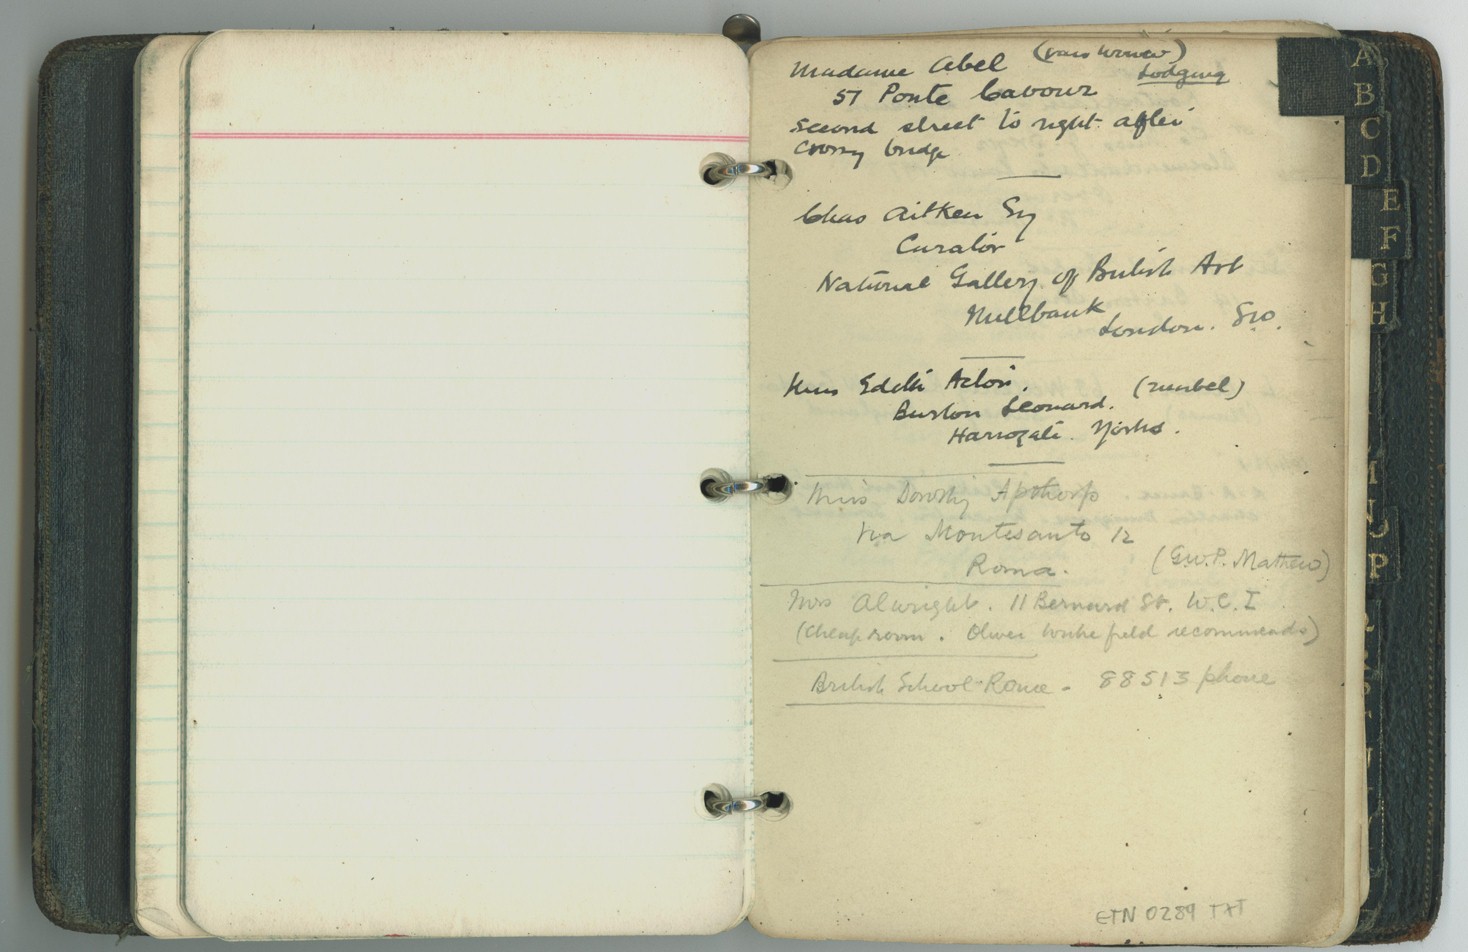 Madame Abel
Lodging
57 Ponte Cavour
second street to right after
crossing bridge
Chas Aitken Esq
Curator
National Gallery of British Art
Millbank
London. SW.
Miss Edith Acton. 
Burton Leonard.
Harrogate. Yorks.
Miss Dorothy Apthorp
Via Montesanto 12
Roma. (G.W.P. Mathew)
Mrs Alwright. 11 Bernard St. W.C.I
(Cheap room. Oliver Wakefield recommends)
British School Rome - 88513 phone
ETN 0289 TXT
A
B
C
D
E
F
G
H
M
N
O
P